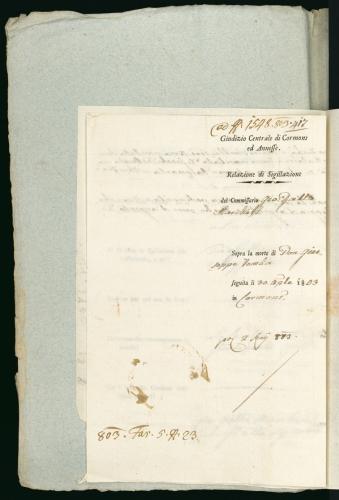 ad ff. 1548. 803. 417
Giudizio Centrale di Cormons
ed Annesse.
Relazione di Sigillazione
del Commissario Gio: Batta
Sopra la morte di Don Gius
seppe
seguita li 30 Aple 1803
in Cormons.
2 803.
803. Fas. 5. ff. 23.